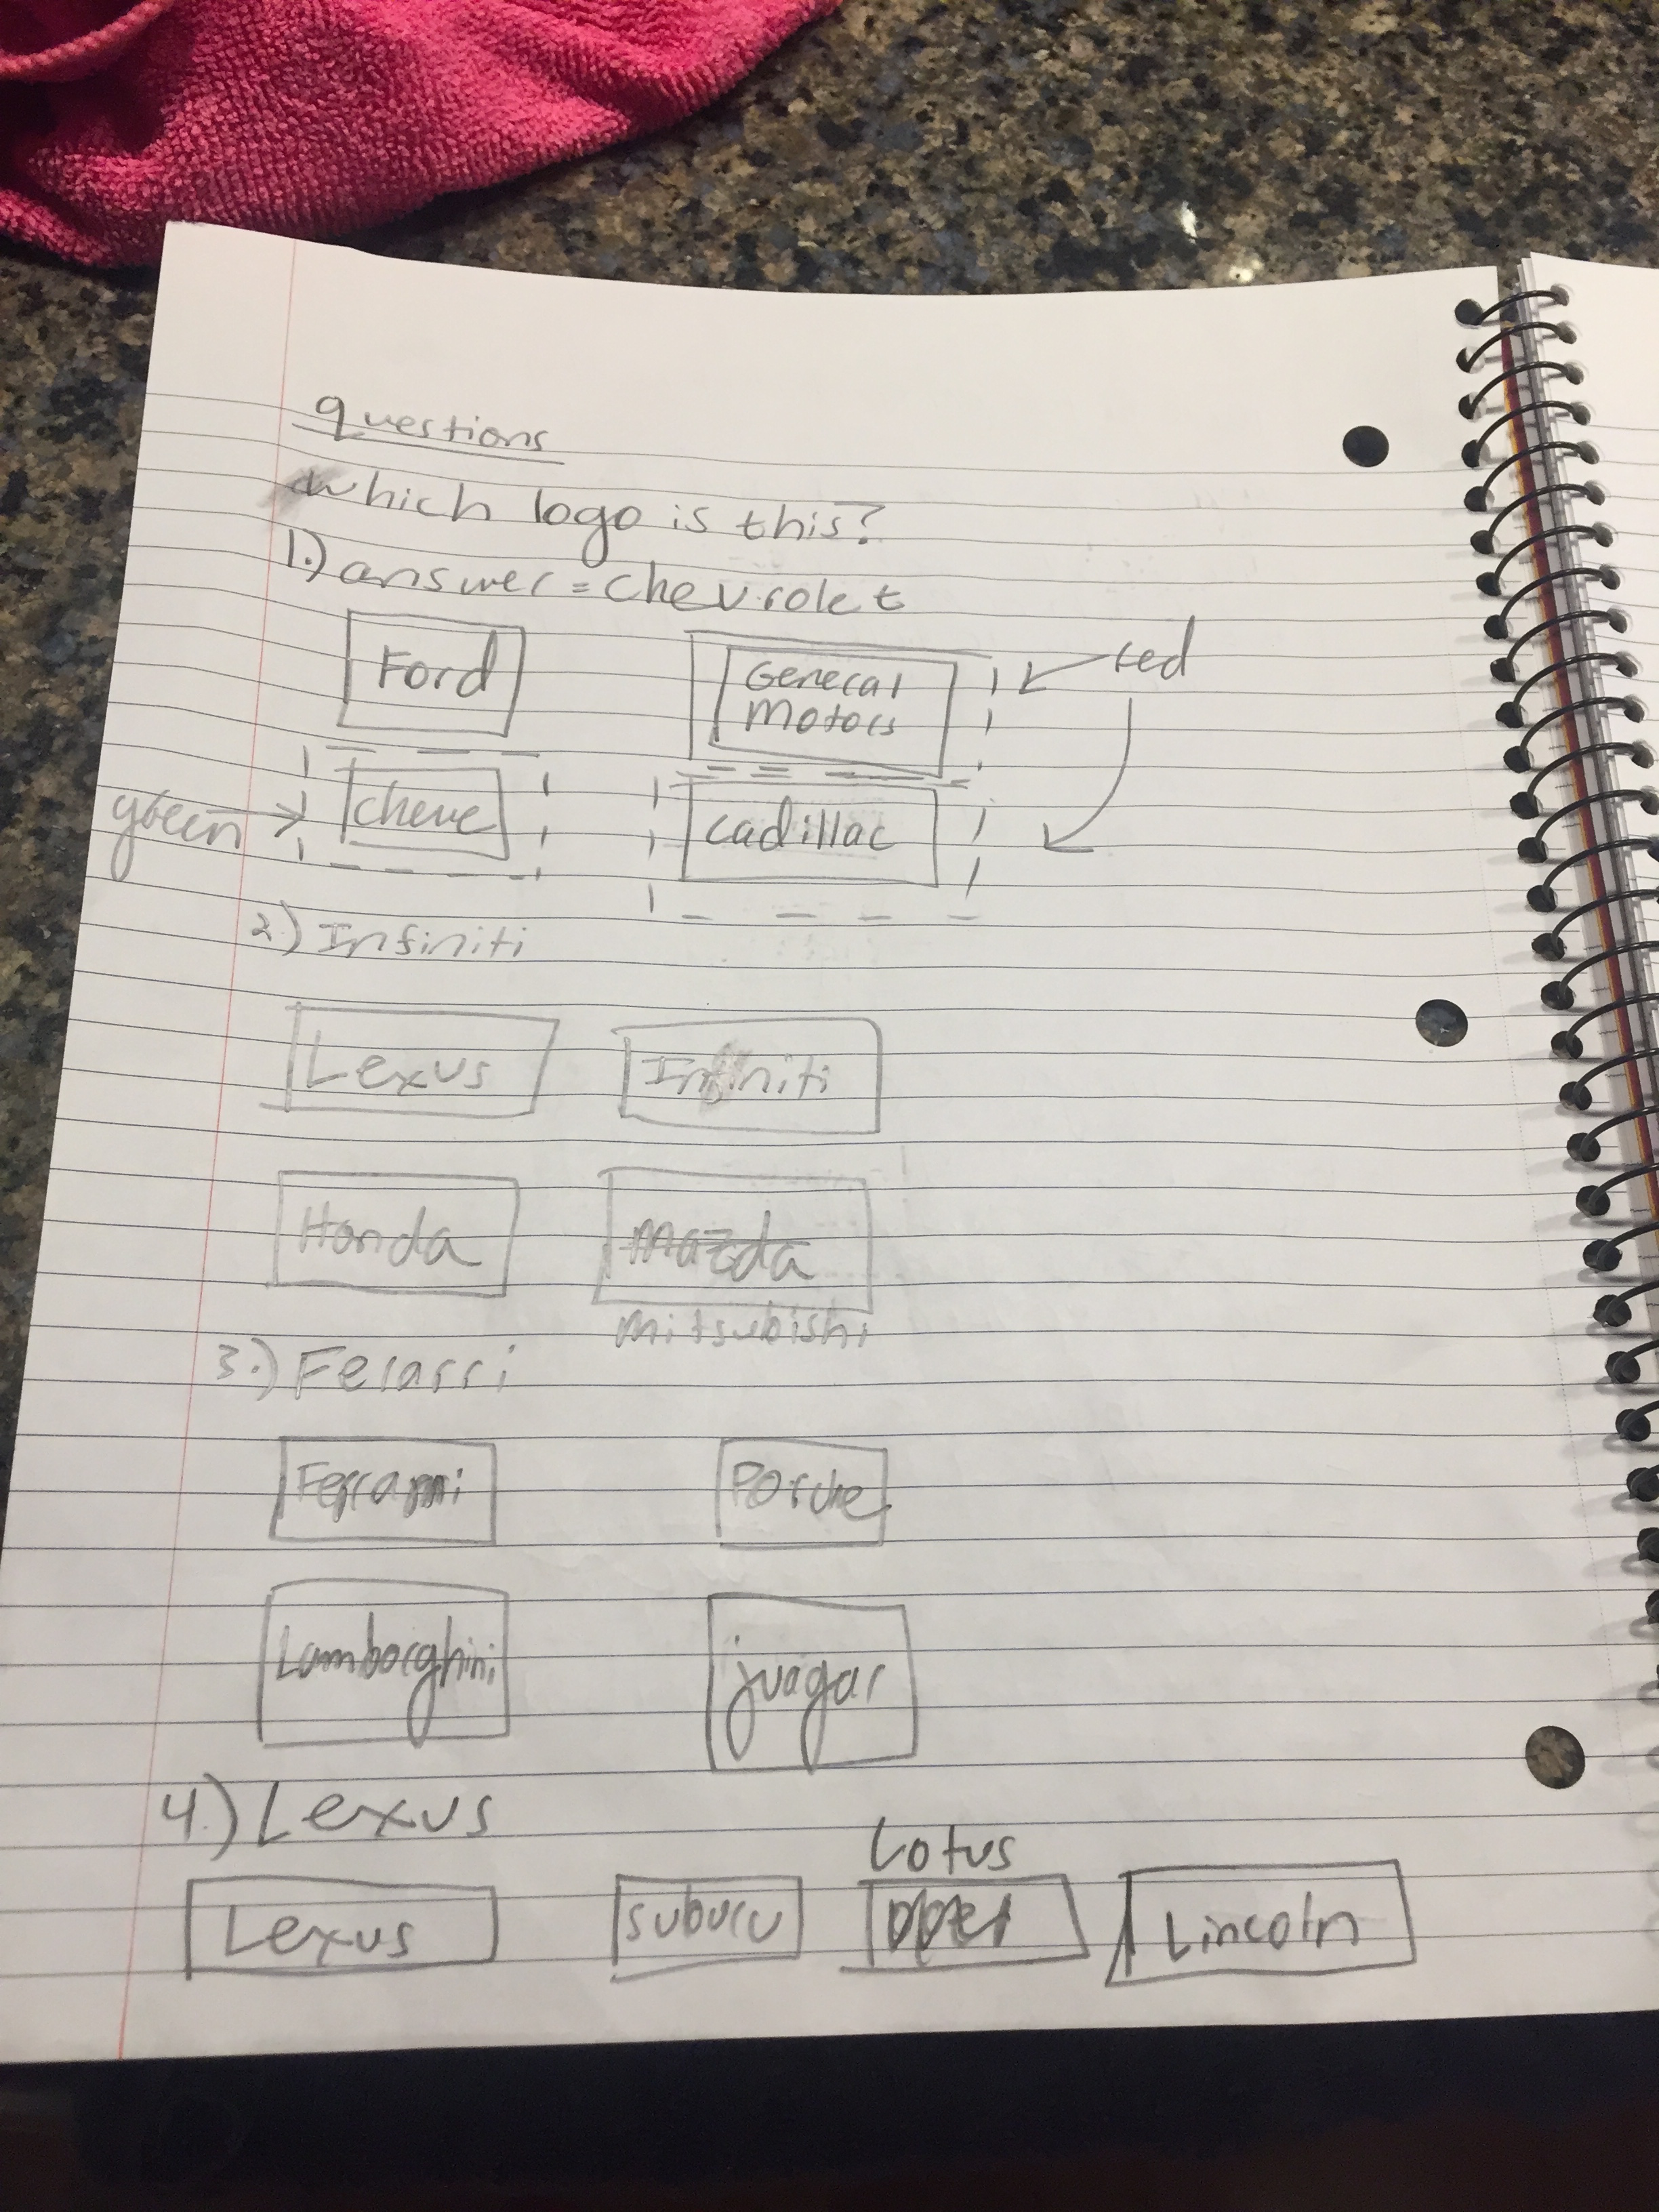 questions
which logo is this?
1.) answer = chevrolet
Ford General Motors red
green cheve cadillac
2.) Infiniti
Lexus Infiniti
Honda mazda
mitsubishi
3.) Ferarri
Ferrarri Porche
Lamborghini juagar
4.) Lexus
Lotus
Lexus suburu Lincoln